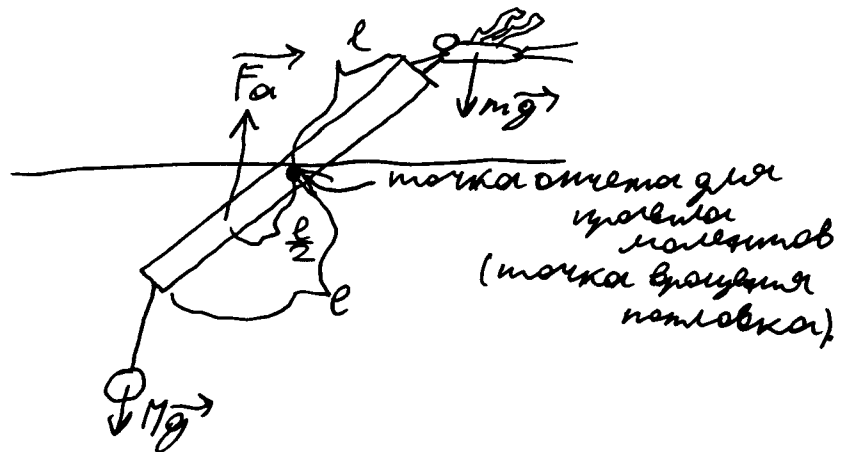 l
Fa
mg
точка отчета для
правила
моментов
(точка вращения
поплавка).
l/2
l
Mg